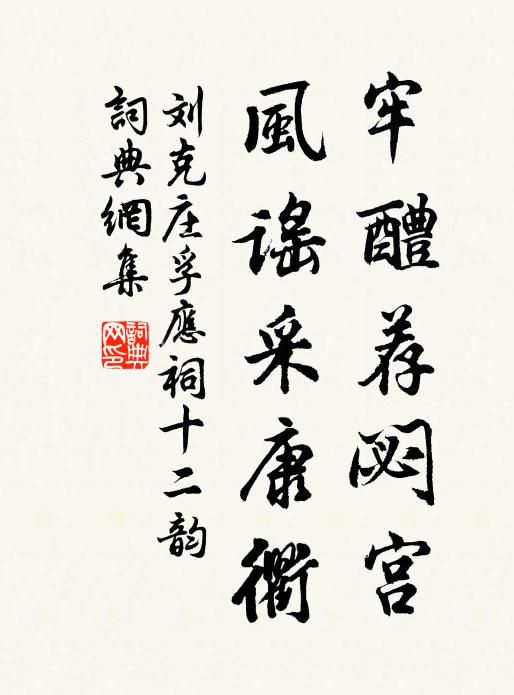 牢醴荐閟宫
風謡采康衢
刘克庄孚應祠十二韵
詞典網集
詞典網印